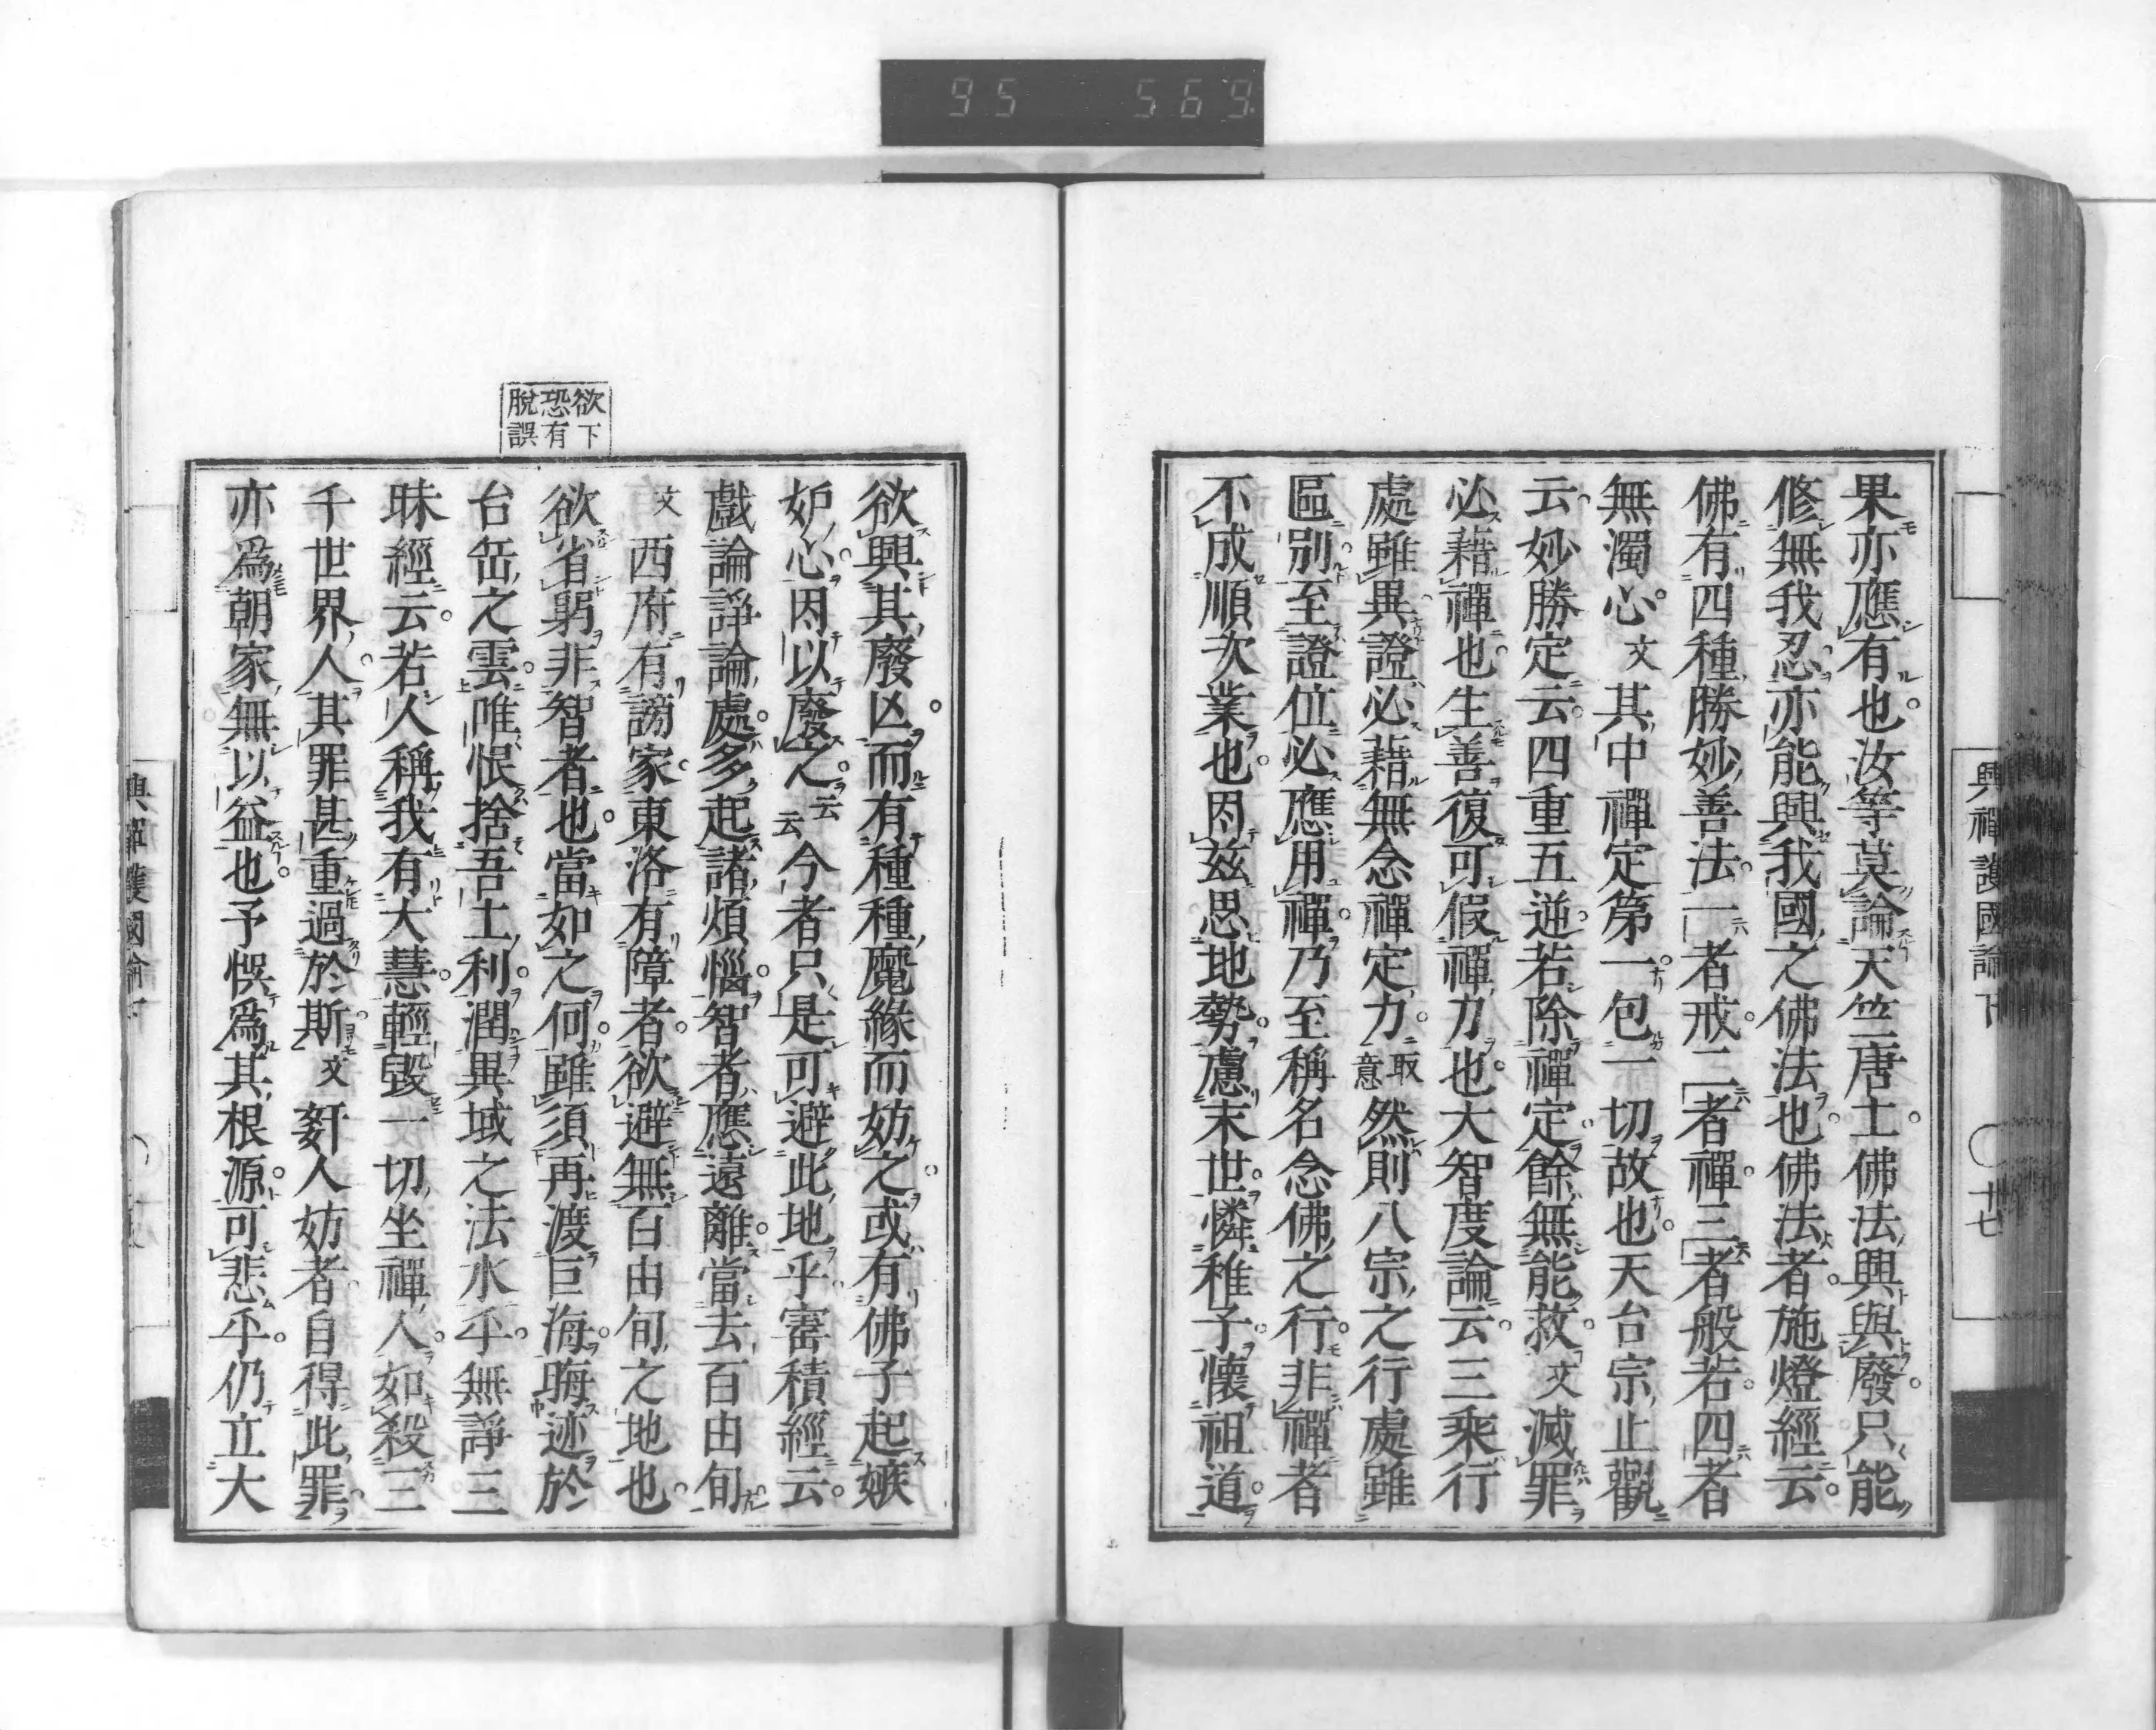 95 569
興禪護國論下
廿七
果亦應有也汝等莫論天竺唐土佛法興與廢只能
修無我忍亦能興我國之佛法也佛法者施燈經云
佛有四種勝妙善法一者戒二者禪三者般若四者
無濁心文其中禪定第一包一切故也天台宗止觀
云妙勝定云四重五逆若除禪定餘無能救文滅罪
必藉禪也生善復可假禪力也大智度論云三乘行
處雖異證必藉無念禪定力取意然則八宗之行處雖
區別至證位必應用禪乃至稱名念佛之行非禪者
不成順次業也因茲思地勢慮末世憐稚子懷祖道
欲下
恐有
脫誤
欲興其廢凶而有種種魔緣而妨之或有佛子起嫉
妒心因以廢之云云今者只是可避此地乎寶積經云
戲論諍論處多起諸煩惱智者應遠離當去百由旬
文西府有謗家東洛有障者欲避無百由旬之地也
欲省躬非智者也當如之何雖須再渡巨海晦迹於
台岳之雲唯恨捨吾土利潤異域之法水乎無諍三
昧經云若人稱我有大慧輕毀一切坐禪人如殺三
千世界人其罪甚重過於斯文姧人妨者自得此罪
亦爲朝家無以益也予悞爲其根源可悲乎仍立大
興禪護國論下